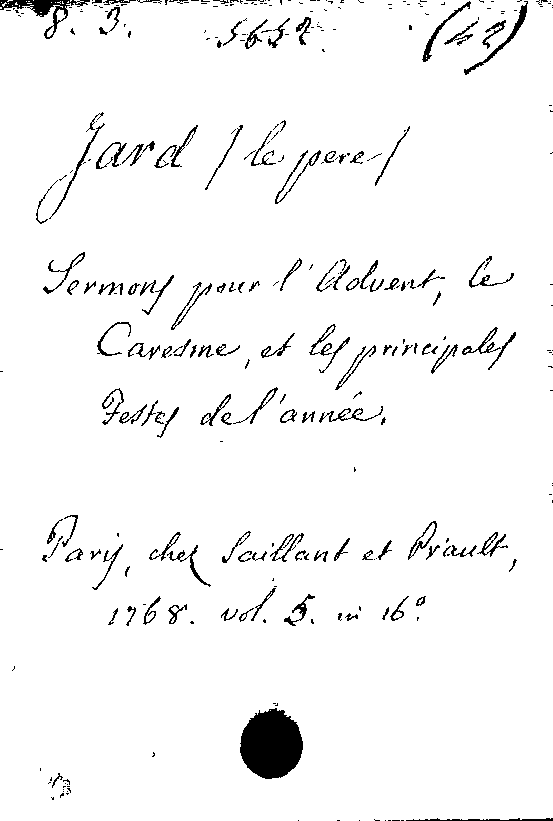 8. 3. 5652 (42)
Jard / le pere /
Sermons pour l'Advent, le
Caresme, et les principales
Festes de l'année.
Paris, chez Saillant et Priault,
1768. vol. 5. in 16º.